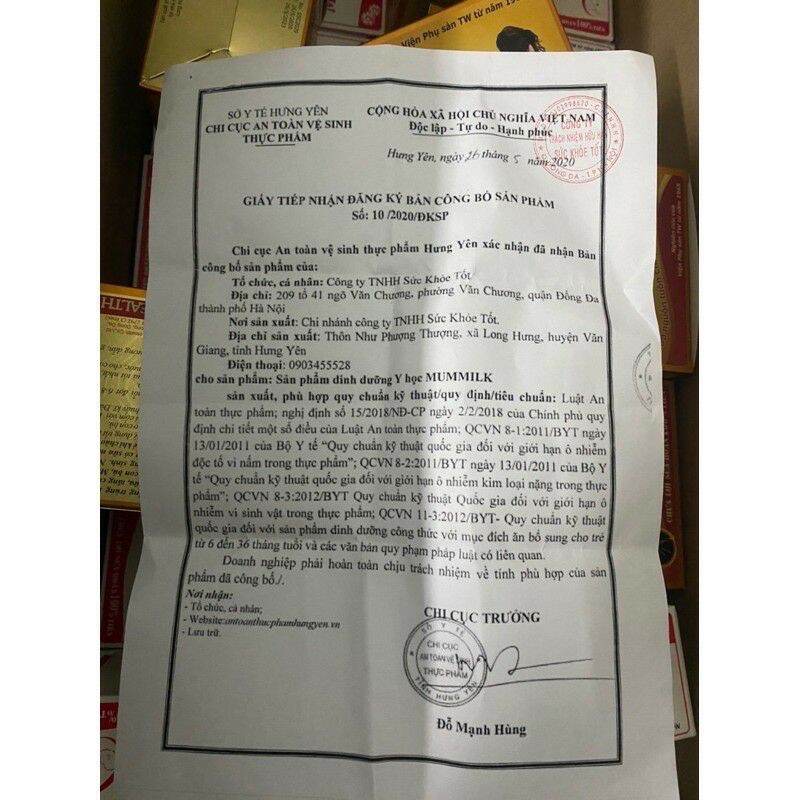 Viện Phụ sản TW từ năm
SỞ Y TẾ HƯNG YÊN
CHI CỤC AN TOÀN VỆ SINH
THỰC PHẨM
CỘNG HÒA XÃ HỘI CHỦ NGHĨA VIỆT NAM
Độc lập - Tự do - Hạnh phúc
Hưng Yên, ngày 26 tháng 5 năm 2020
CÔNG TY
TRÁCH NHIỆM HỮU HẠN
SỨC KHỎE TỐT
GIẤY TIẾP NHẬN ĐĂNG KÝ BẢN CÔNG BỐ SẢN PHẨM
Số: 10 /2020/ĐKSP
Chi cục An toàn vệ sinh thực phẩm Hưng Yên xác nhận đã nhận Bản
công bố sản phẩm của:
Tổ chức, cá nhân: Công ty TNHH Sức Khỏe Tốt.
Địa chỉ: 209 tổ 41 ngõ Văn Chương, phường Văn Chương, quận Đống Đa
thành phố Hà Nội
Nơi sản xuất: Chi nhánh công ty TNHH Sức Khỏe Tốt.
Địa chỉ sản xuất: Thôn Như Phượng Thượng, xã Long Hưng, huyện Văn
Giang, tỉnh Hưng Yên
Điện thoại: 0903455528
cho sản phẩm: Sản phẩm dinh dưỡng Y học MUMMILK
sản xuất, phù hợp quy chuẩn kỹ thuật/quy định/tiêu chuẩn: Luật An
toàn thực phẩm; nghị định số 15/2018/NĐ-CP ngày 2/2/2018 của Chính phủ quy
định chi tiết một số điều của Luật An toàn thực phẩm; QCVN 8-1:2011/BYT ngày
13/01/2011 của Bộ Y tế “Quy chuẩn kỹ thuật quốc gia đối với giới hạn ô nhiễm
độc tố vi nấm trong thực phẩm”; QCVN 8-2:2011/BYT ngày 13/01/2011 của Bộ Y
tế “Quy chuẩn kỹ thuật quốc gia đối với giới hạn ô nhiễm kim loại nặng trong thực
phẩm”; QCVN 8-3:2012/BYT Quy chuẩn kỹ thuật Quốc gia đối với giới hạn ô
nhiễm vi sinh vật trong thực phẩm; QCVN 11-3:2012/BYT- Quy chuẩn kỹ thuật
quốc gia đối với sản phẩm dinh dưỡng công thức với mục đích ăn bổ sung cho trẻ
từ 6 đến 36 tháng tuổi và các văn bản quy phạm pháp luật có liên quan.
Doanh nghiệp phải hoàn toàn chịu trách nhiệm về tính phù hợp của sản
phẩm đã công bố./.
Nơi nhận:
- Tổ chức, cá nhân;
- Website:antoanthucphamhungyen.vn
- Lưu trữ.
CHI CỤC TRƯỞNG
SỞ Y TẾ
CHI CỤC
AN TOÀN VỆ SINH
THỰC PHẨM
TỈNH HƯNG YÊN
Đỗ Mạnh Hùng